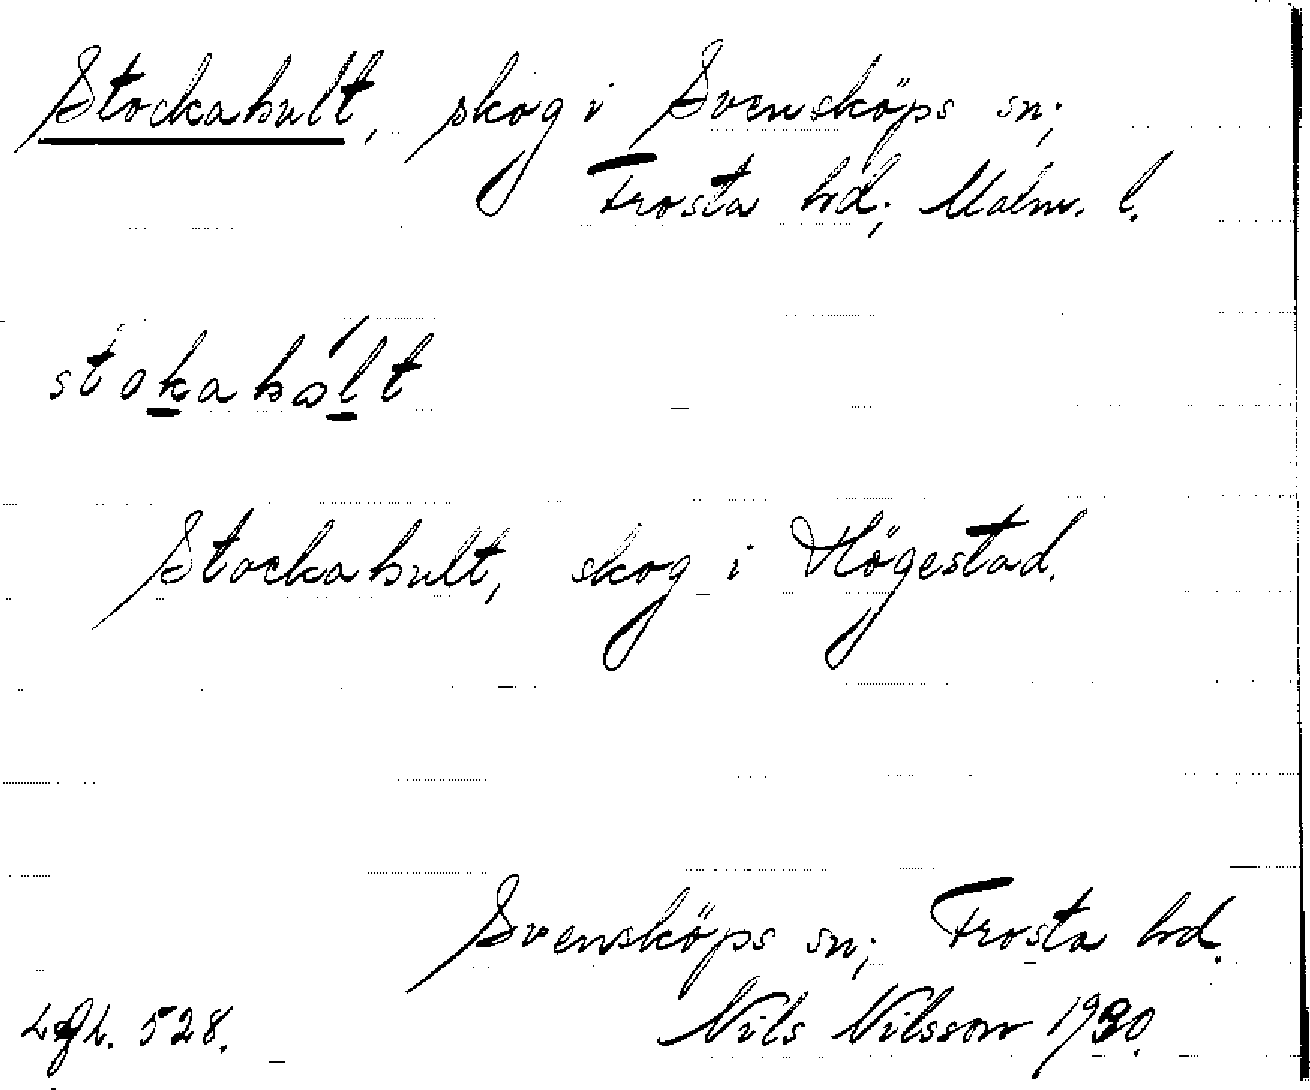 Stockahult, skog i Svensköps sn;
Frosta hd; Malm. l.
stokahalt
Stockahult, skog i Högestad.
Svensköps sn; Frosta hd.
528.
Nils Nilsson 1930.